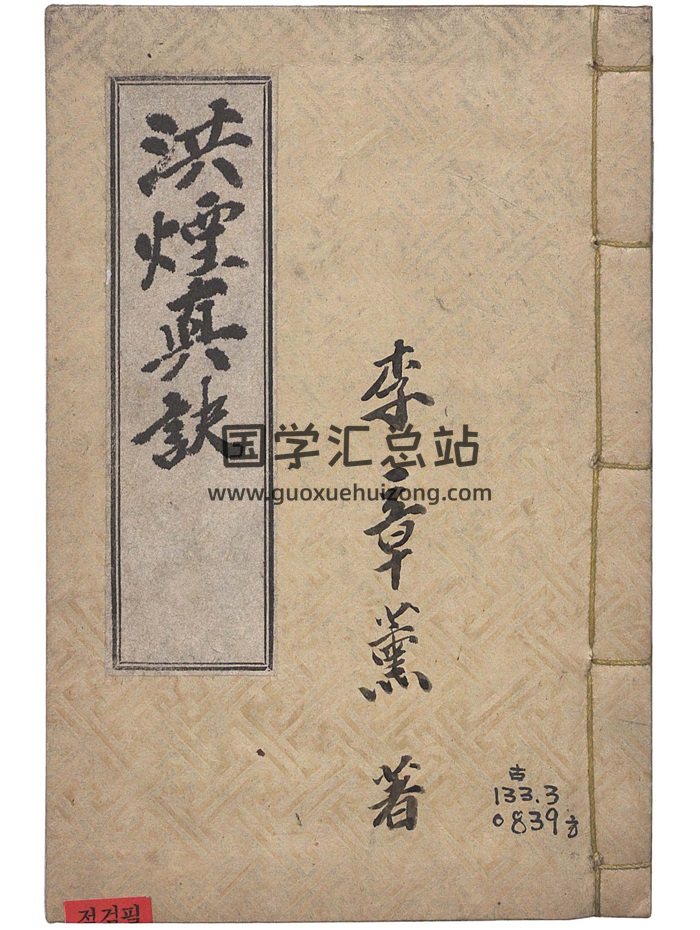 洪煙真訣
李章薰 著
国学汇总站
www.guoxuehuizong.com
古
133.3
0839
점검필